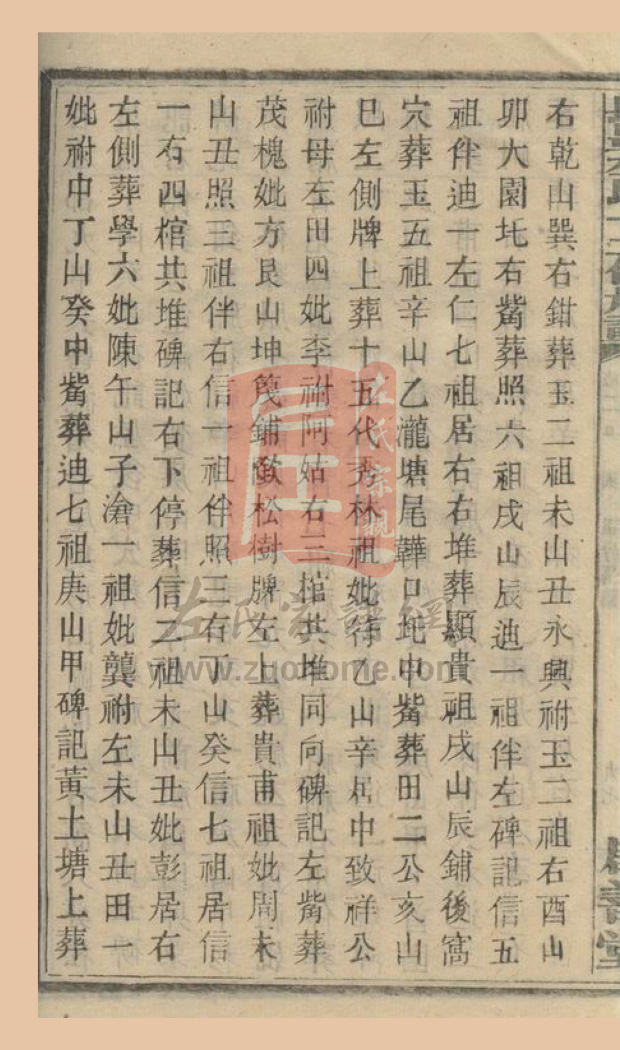 右乾山巽右鉗葬玉二祖未山丑永興祔玉二祖右酉山
卯大園圫右觜葬照六祖戌山辰迪一祖伴左碑記信五
祖伴迪一左仁七祖居右右堆葬顯貴祖戌山辰鋪後窩
穴葬玉五祖辛山乙瀧塘尾鞾口圫中觜葬田二公亥山
巳左側牌上葬十五代秀林祖妣待乙山辛居中致祥公
祔母左田四妣李祔阿姑右三棺共堆同向碑記左觜葬
茂槐妣方艮山坤篾鋪墩松樹牌左上葬貴甫祖妣周未
山丑照三祖伴右信一祖伴照三右丁山癸信七祖居信
一右四棺共堆碑記右下停葬信二祖未山丑妣彭居右
左側葬學六妣陳午山子滄一祖妣龔祔左未山丑田一
妣祔中丁山癸中觜葬迪七祖庚山甲碑記黃土塘上葬
左氏宗親
左氏宗譜網
www.zuohome.com